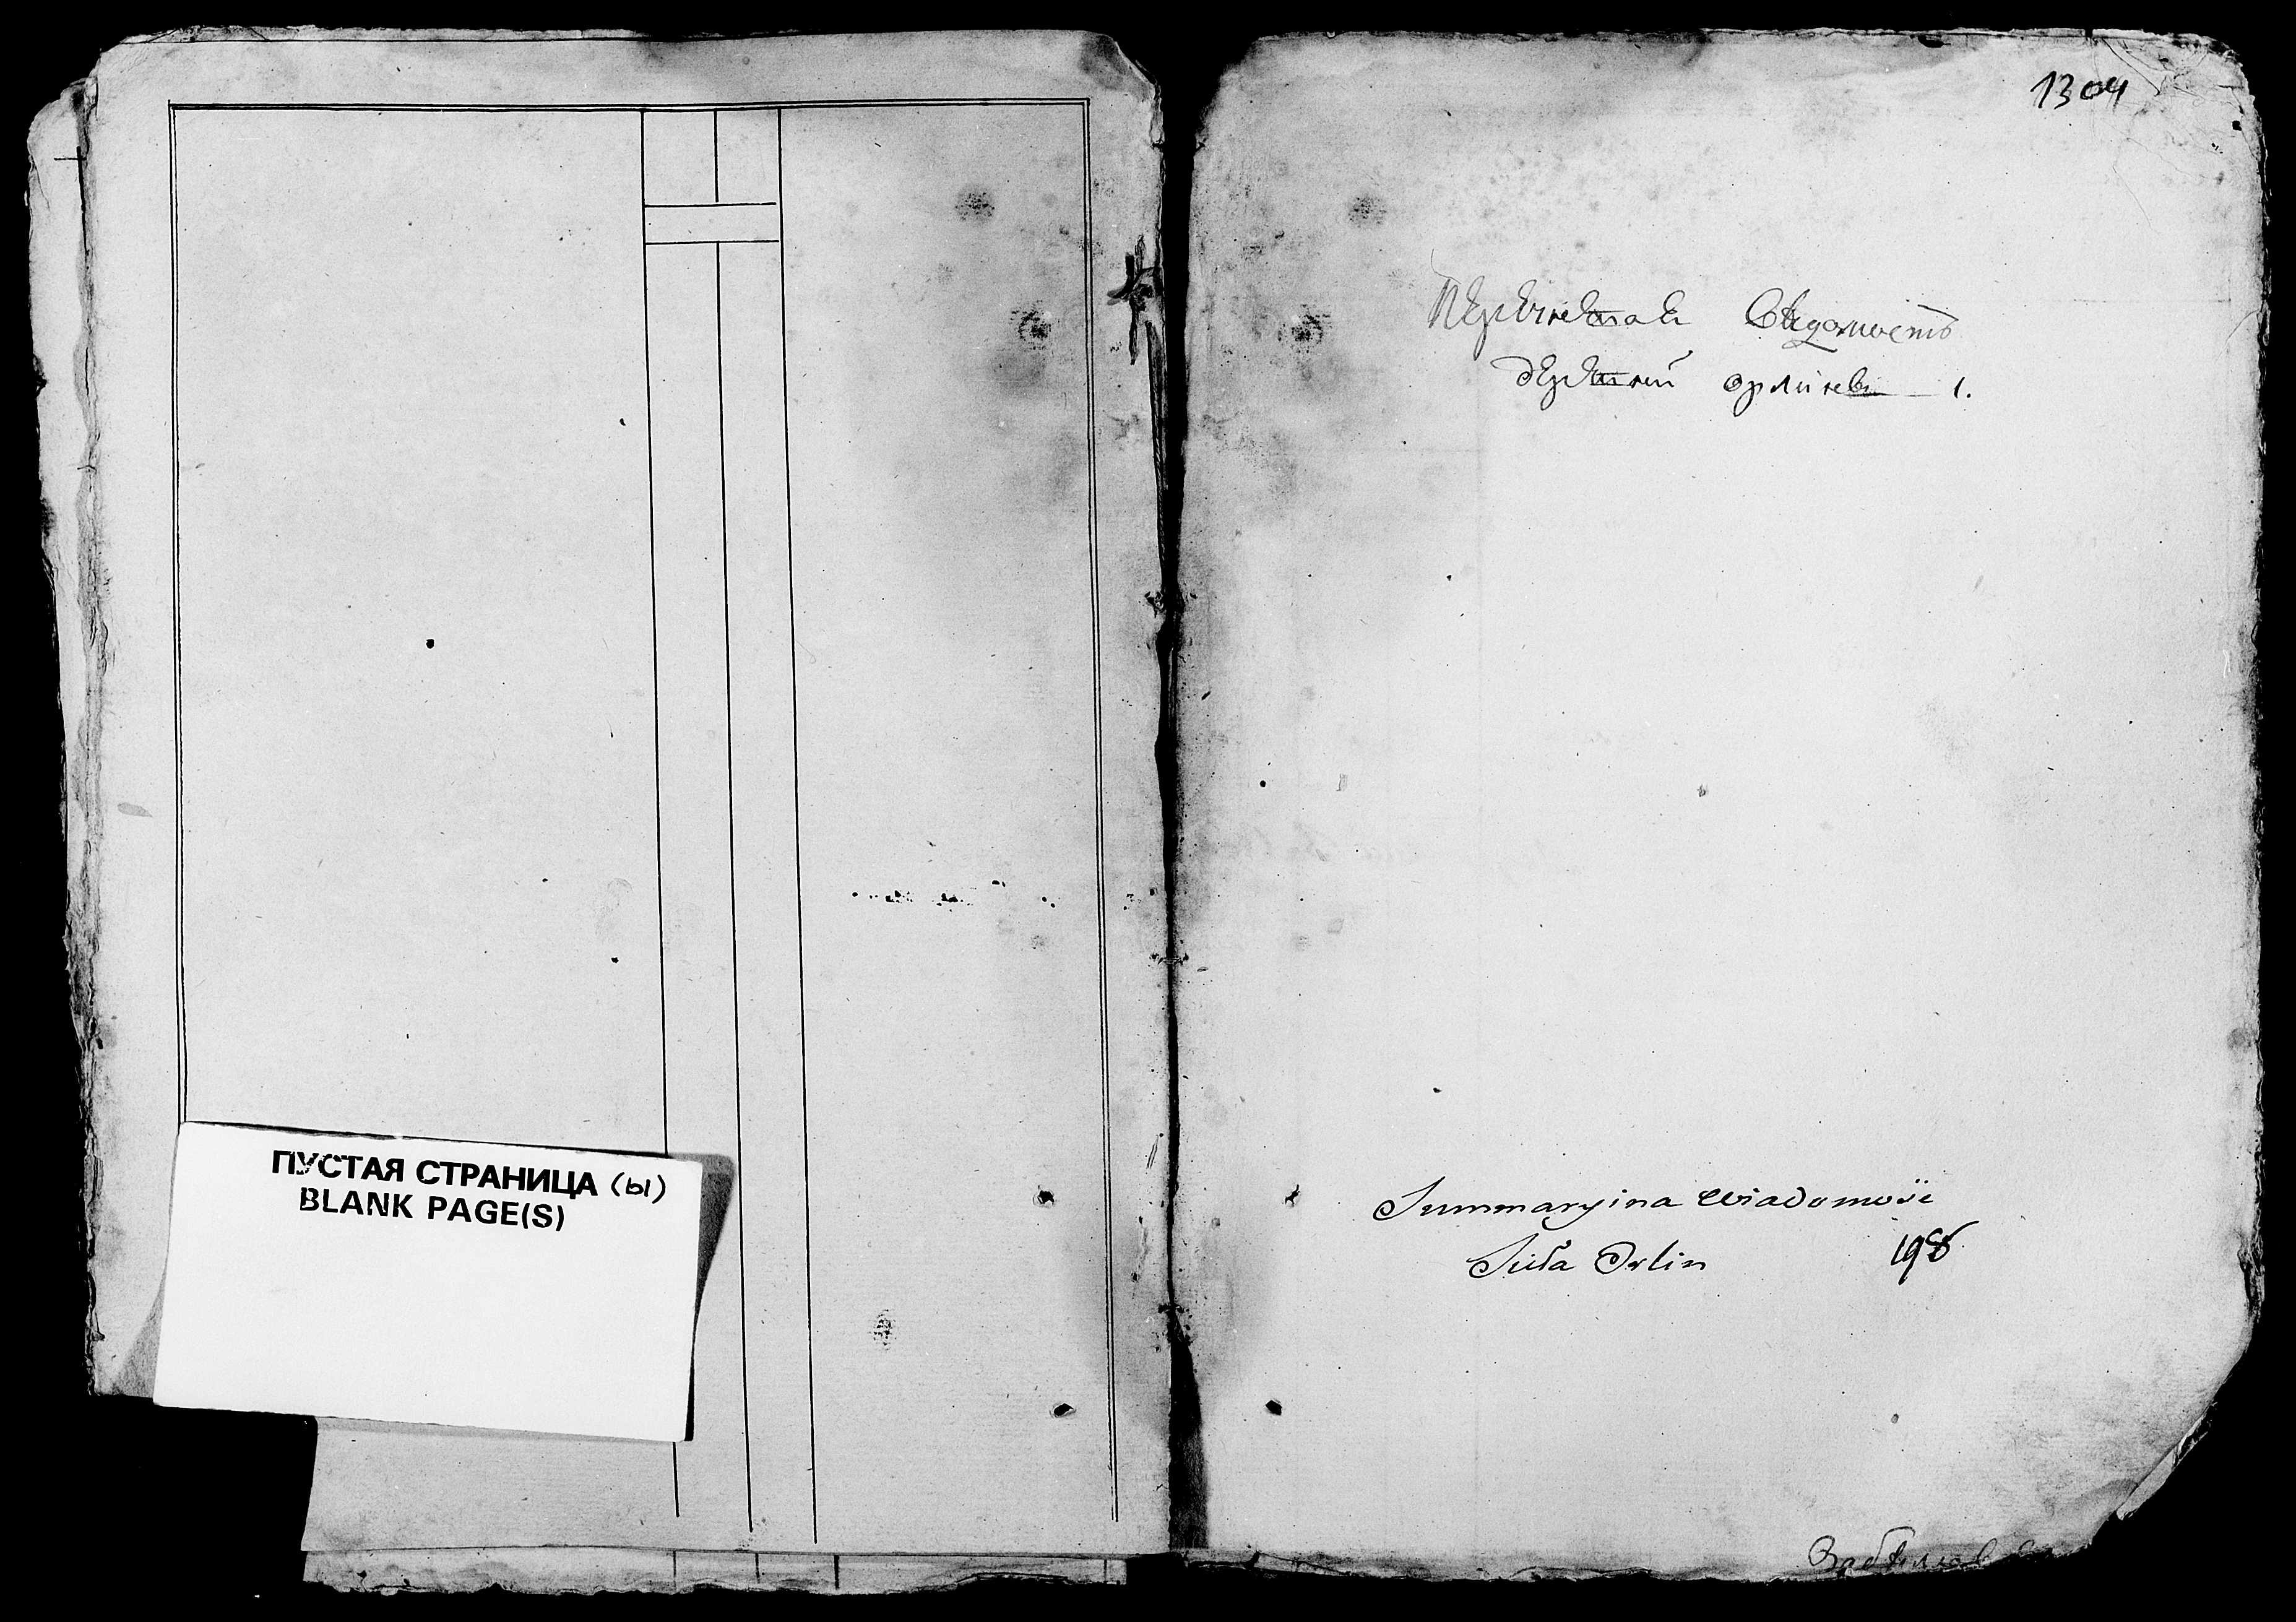 ПУСТАЯ СТРАНИЦА (ы)
BLANK PAGE(S)
1304
Перечневая Ведомость
деревни орлинъ 1.
Summaryina Wiadomość
Sioła Orlin 198